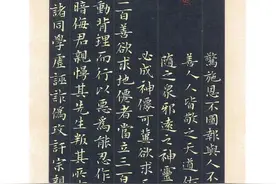 驚施恩不圖報與人不
善人人皆敬之天道佑
隨之眾邪遠之神靈
必成神僊可冀欲求
百善欲求地僊者當立三百
動背理而行以惡為能忍作
暗侮君親慢其先生叛其所
諸同學虛誣詐偽攻訐宗親